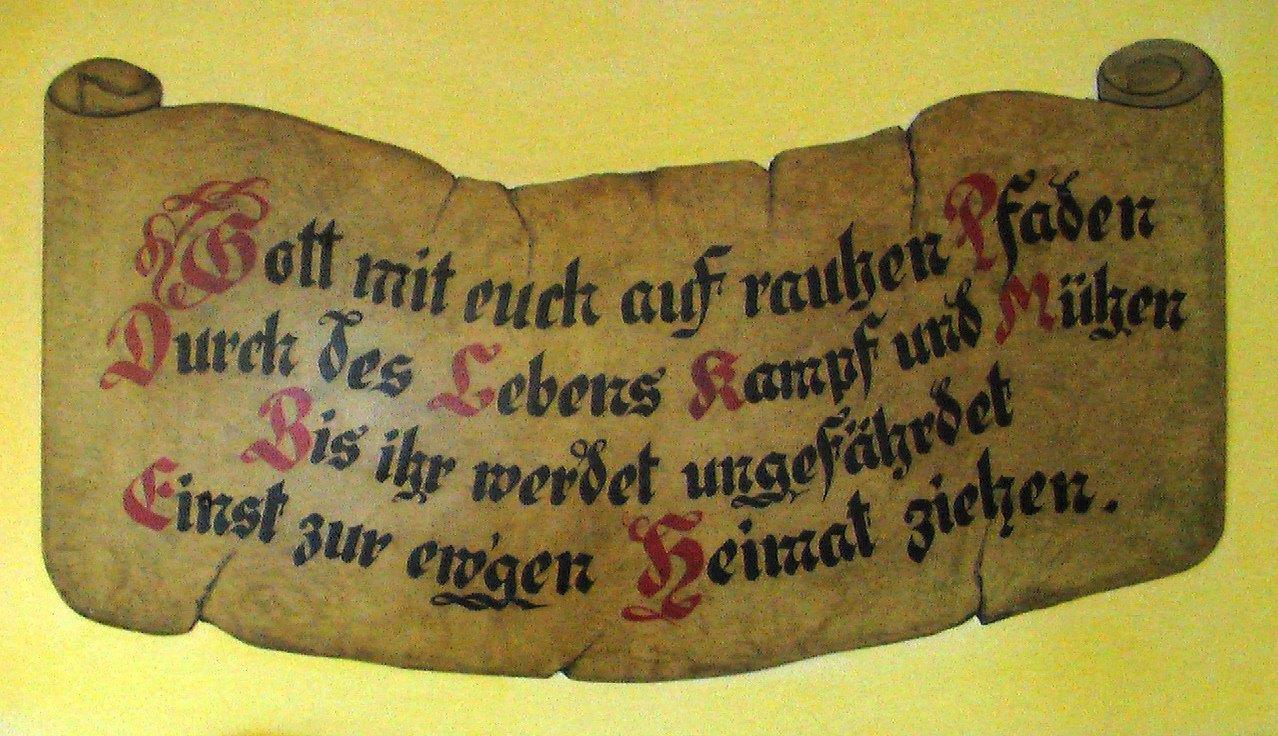 Gott mit euch auf rauhen Pfaden
Durch des Lebens Kampf und Mühen
Bis ihr werdet ungefährdet
Einst zur ew'gen Heimat ziehen.